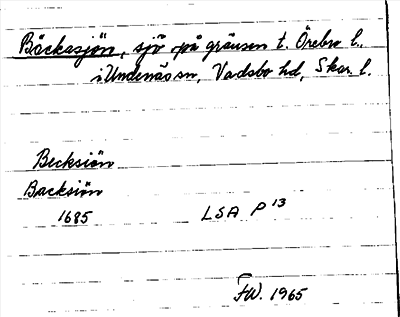 Bäckasjön, sjö på gränsen t. Örebro l.,
i Undenäs sn, Vadsbo hd, Skar. l.
Becksiön
Backsiön
1685 LSA P 13
FW. 1965